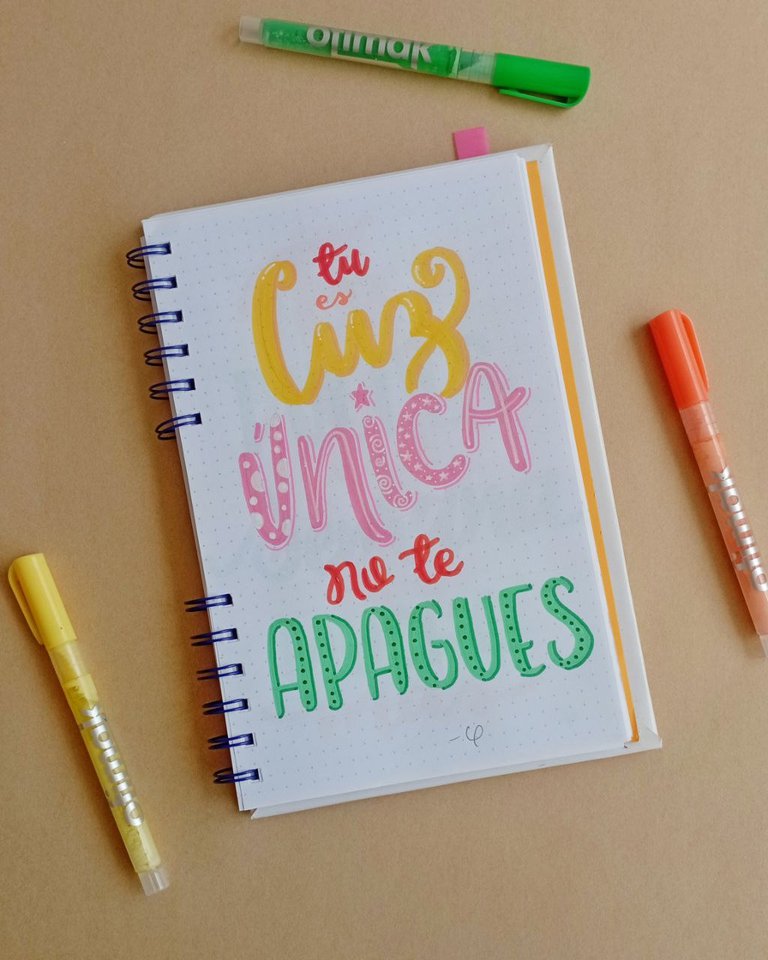 ofimak
tu
es
luz
ÚNICA
no te
APAGUES
-φ
ofimak
ofimak